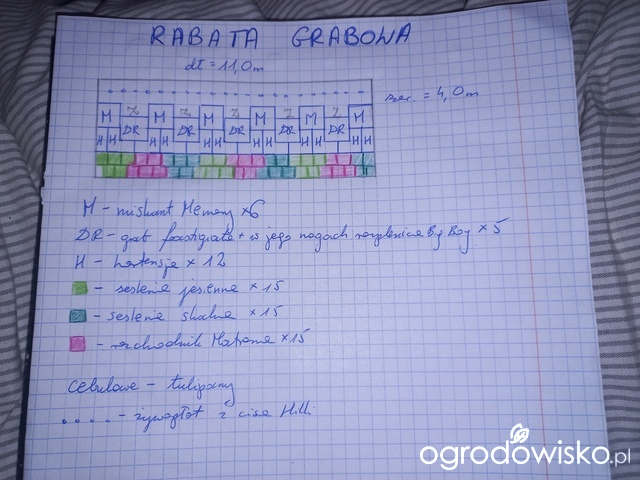 RABATA GRABOWA
dł = 11,0m
szer. = 4,0m
Z Z Z Z Z
M M M M M M
DR DR DR DR DR
H H H H H H H H H H H H
M - miskant Memory x6
DR - grab fastigiata + w jego nogach rozplenica Big Boy x 5
H - hortensja x 12
- seslenia jesienna x 15
- seslenia skalna x 15
- rozchodnik Matrona x 15
Cebulowe - tulipany
.... - żywopłot z cisa Hilli
ogrodowisko.pl